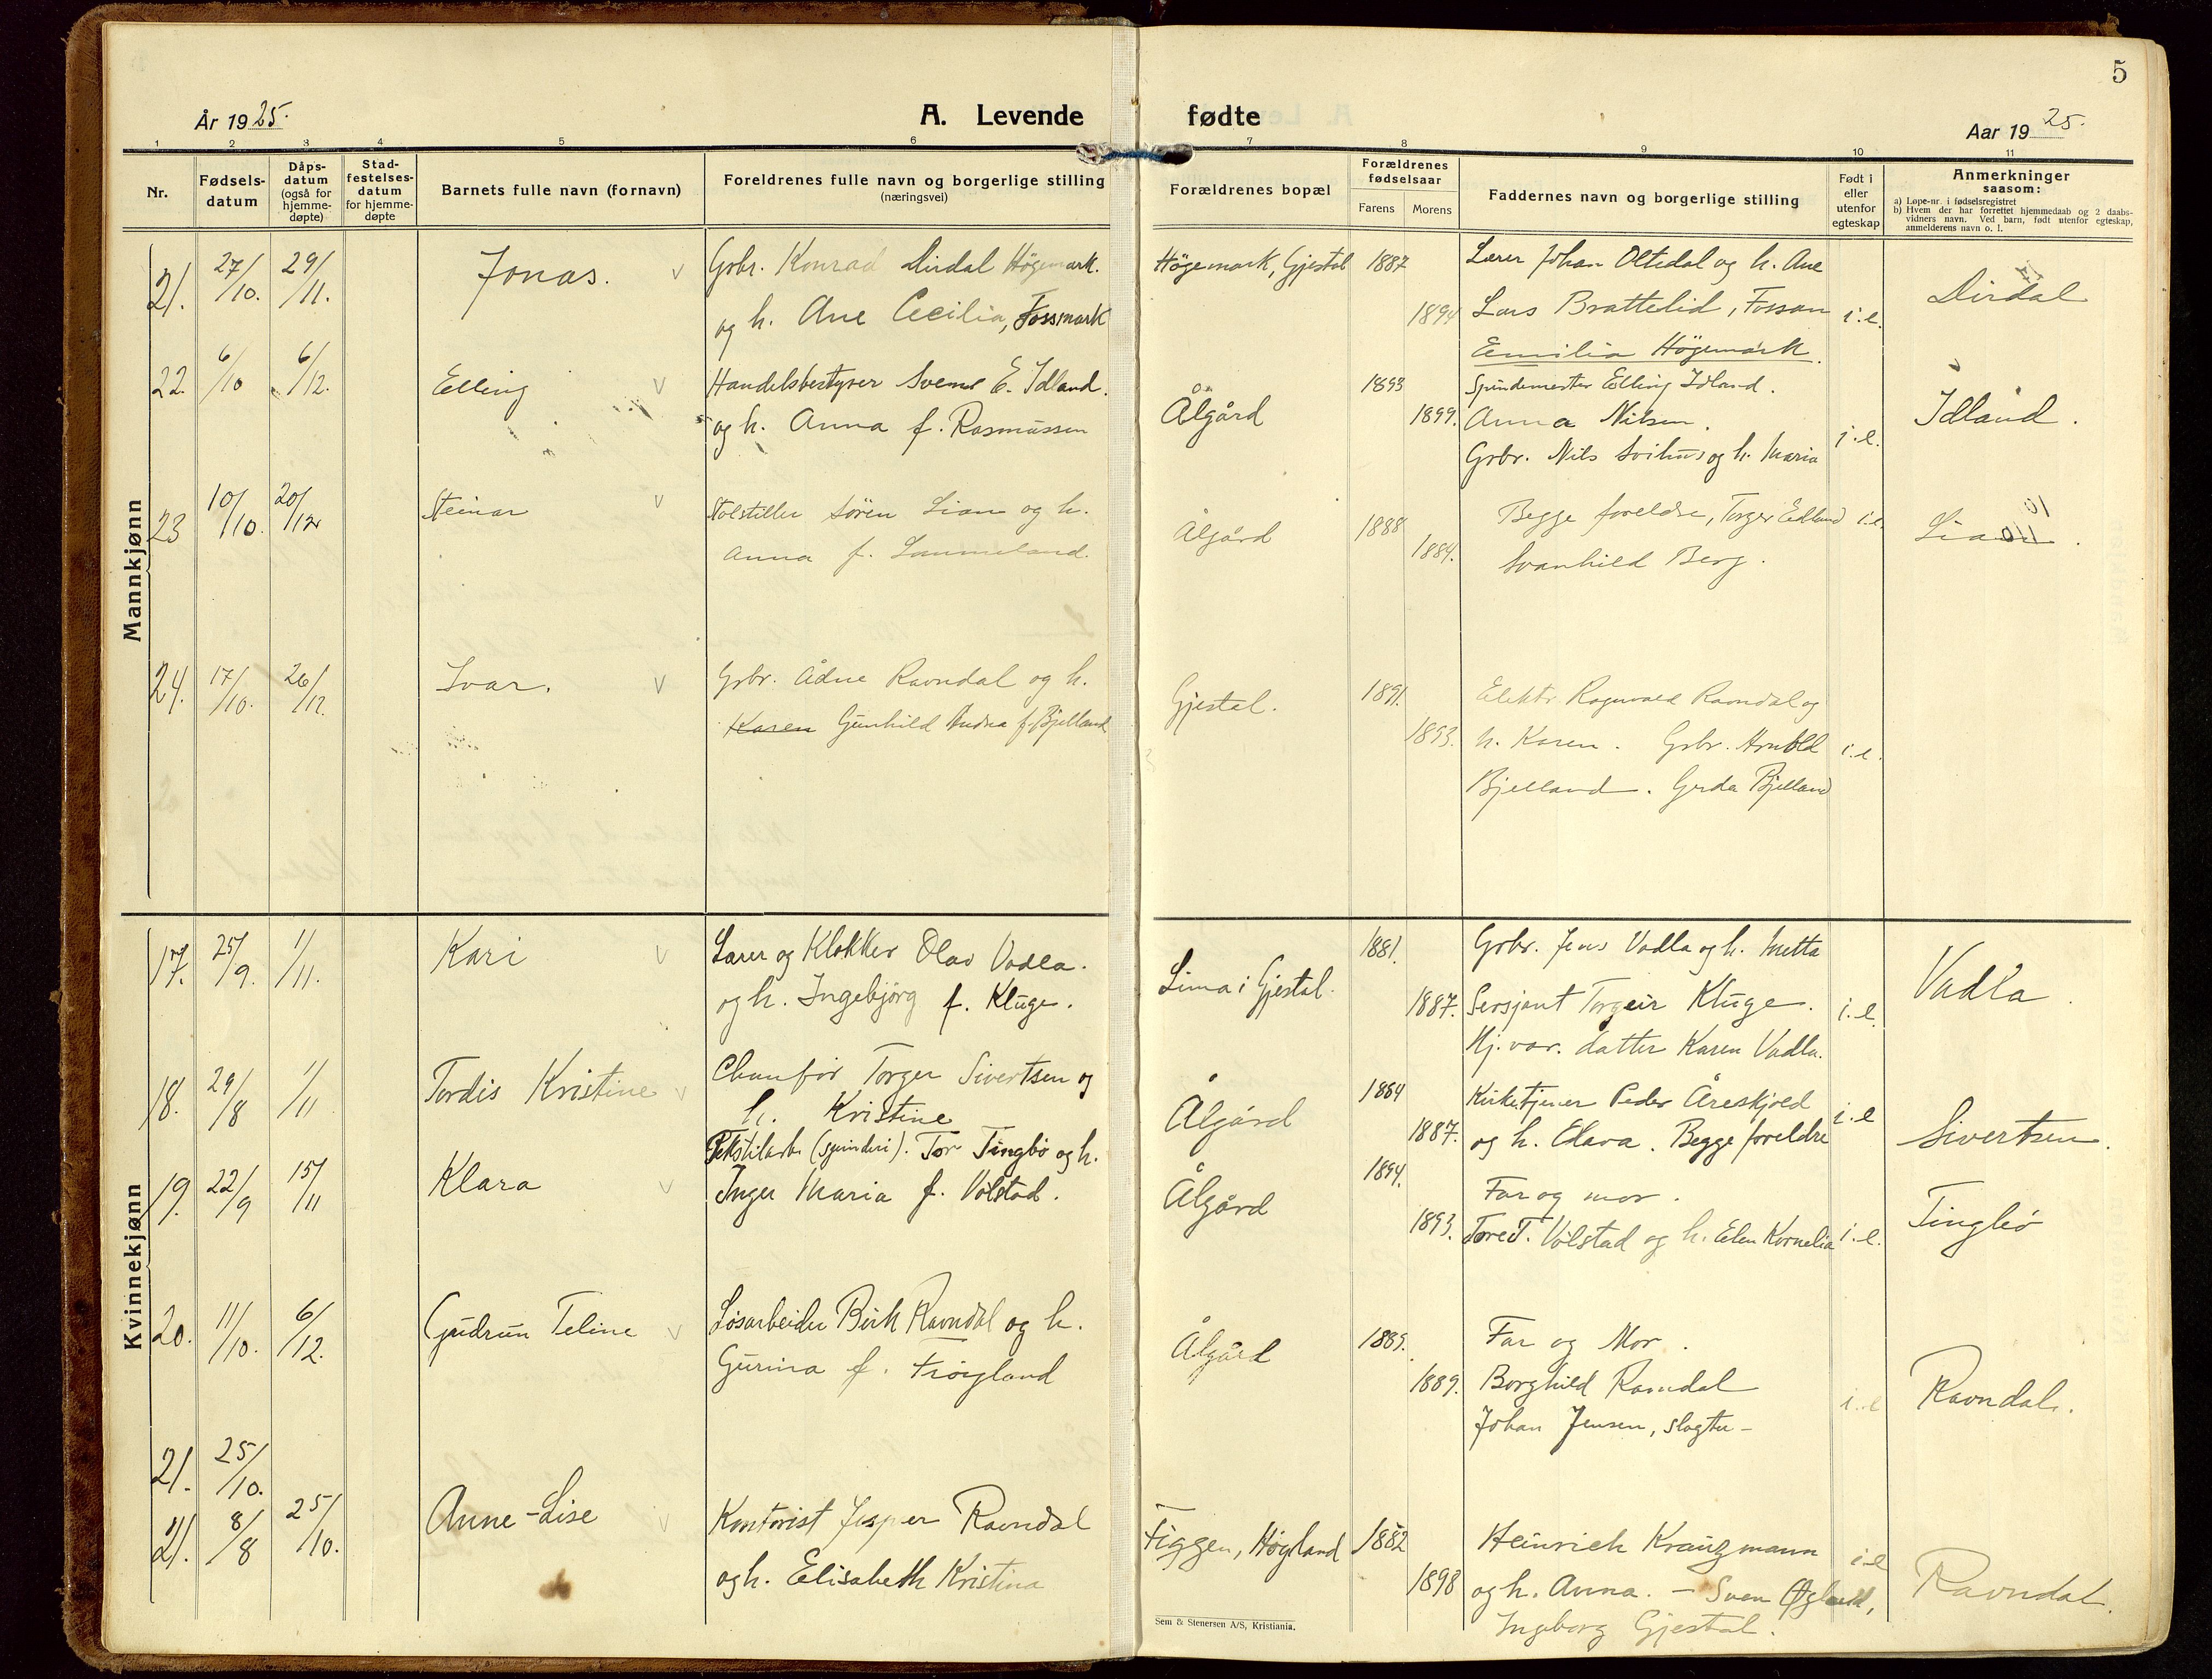 5
År 1925.
A. Levende fødte
Aar 1925.
1 2 3 4 5 6 7 8 9 10 11
Nr.
Fødsels-
datum
Dåps-
datum
(også for
hjemme-
døpte)
Stad-
festelses-
datum
for hjemme-
døpte
Barnets fulle navn (fornavn)
Foreldrenes fulle navn og borgerlige stilling
(næringsvei)
Forældrenes bopæl
Forældrenes
fødselsaar
Farens Morens
Faddernes navn og borgerlige stilling
Født i
eller
utenfor
egteskap
Anmerkninger
saasom:
a) Løpe-nr. i fødselsregistret
b) Hvem der har forrettet hjemmedaab og 2 daabs-
vidners navn. Ved barn, født utenfor egteskap,
anmelderens navn o. l.
Mannkjønn
21. 27/10. 29/11. Jonas. v
Grbr. Konrad Dirdal Högemark.
og h. Ane Cecilia, Fossmark
Högemark, Gjestal 1887 1894
Lærer Johan Oltedal og h. Ane
Lars Brattelid, Fossan
Emilia Högemark.
i.e. Dirdal
22. 6/10 6/12. Elling v
Handelsbestyrer Svend E. Idland.
og h. Anna f. Rasmussen
Ålgård 1893 1899.
Spindemester Elling Idland.
Anna Nilsen.
Grbr. Nils Svihus og h. Maria
i.e. Idland.
23 10/10. 20/12 Steinar v
Stolstiller Sören Lian og h.
Anna f. Lammeland.
Ålgård 1888 1884.
Begge foreldre, Torger Edland
Svanhild Berg.
i.e. Lian.
24. 17/10. 26/12. Ivar. v
Grbr. Ådne Ravndal og h.
Karen Gunhild Andrea f. Bjelland
Gjestal. 1891. 1893.
Elektr. Ragnvald Ravndal og
h. Karen. Grbr. Arnold
Bjelland. Gerda Bjelland
i.e.
Kvinnekjønn
17. 25/9. 1/11. Kari v
Lærer og Klokker Olav Vadla.
og h. Ingebjørg f. Kluge.
Lima i Gjestal. 1881. 1887.
Grbr. Jens Vadla og h. Metta
Sersjant Torgeir Kluge.
Hj. vær. datter Karen Vadla.
i.e. Vadla.
18. 29/8 1/11 Tordis Kristine v
Chauför Torger Sivertsen og
h. Kristine
Ålgård 1884 1887.
Kirketjener Peder Åreskjold
og h. Elava. Begge foreldre
i.e Sivertsen.
19. 22/9 15/11 Klara v
Tekstilarb. (spinderi). Tor Tingbø og h.
Inger Maria f. Volstad.
Ålgård 1894. 1893.
Far og mor.
Tore T. Volstad og h. Elen Kornelia
i.e. Tingbø
20. 11/10. 6/12. Gudrun Teline v
Løsarbeider Berk Ravndal og h.
Gurina f. Frøyland
Ålgård 1889. 1889.
Far og Mor.
Borghild Ravndal
Johan Jensen, slagter -
i.e Ravndal.
21. 25/10.
21. 8/8 25/10. Anne-Lise v
Kontorist Jesper Ravndal
og h. Elisabeth Kristina
Figgen, Høyland 1882 1898
Heinrich Kranzmann
og h. Anna. - Sven Øgland,
Ingeborg Gjestal.
i.e Ravndal.
Sem & Stenersen A/S, Kristiania.